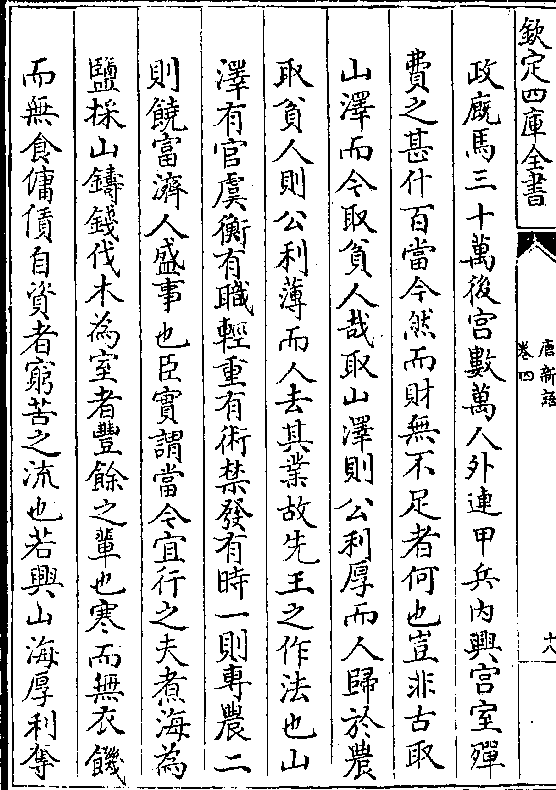 欽定四庫全書
唐新語
卷四
十八
政廐馬三十萬後宮數萬人外連甲兵内興宫室殫
費之甚什百當今然而財無不足者何也豈非古取
山澤而今取貧人哉取山澤則公利厚而人歸於農
取貧人則公利薄而人去其業故先王之作法也山
澤有官虞衡有職輕重有術禁發有時一則專農二
則饒富濟人盛事也臣實謂當今宜行之夫煮海為
鹽採山鑄錢伐木為室者豐餘之輩也寒而無衣饑
而無食傭債自資者窮苦之流也若興山海厚利奪